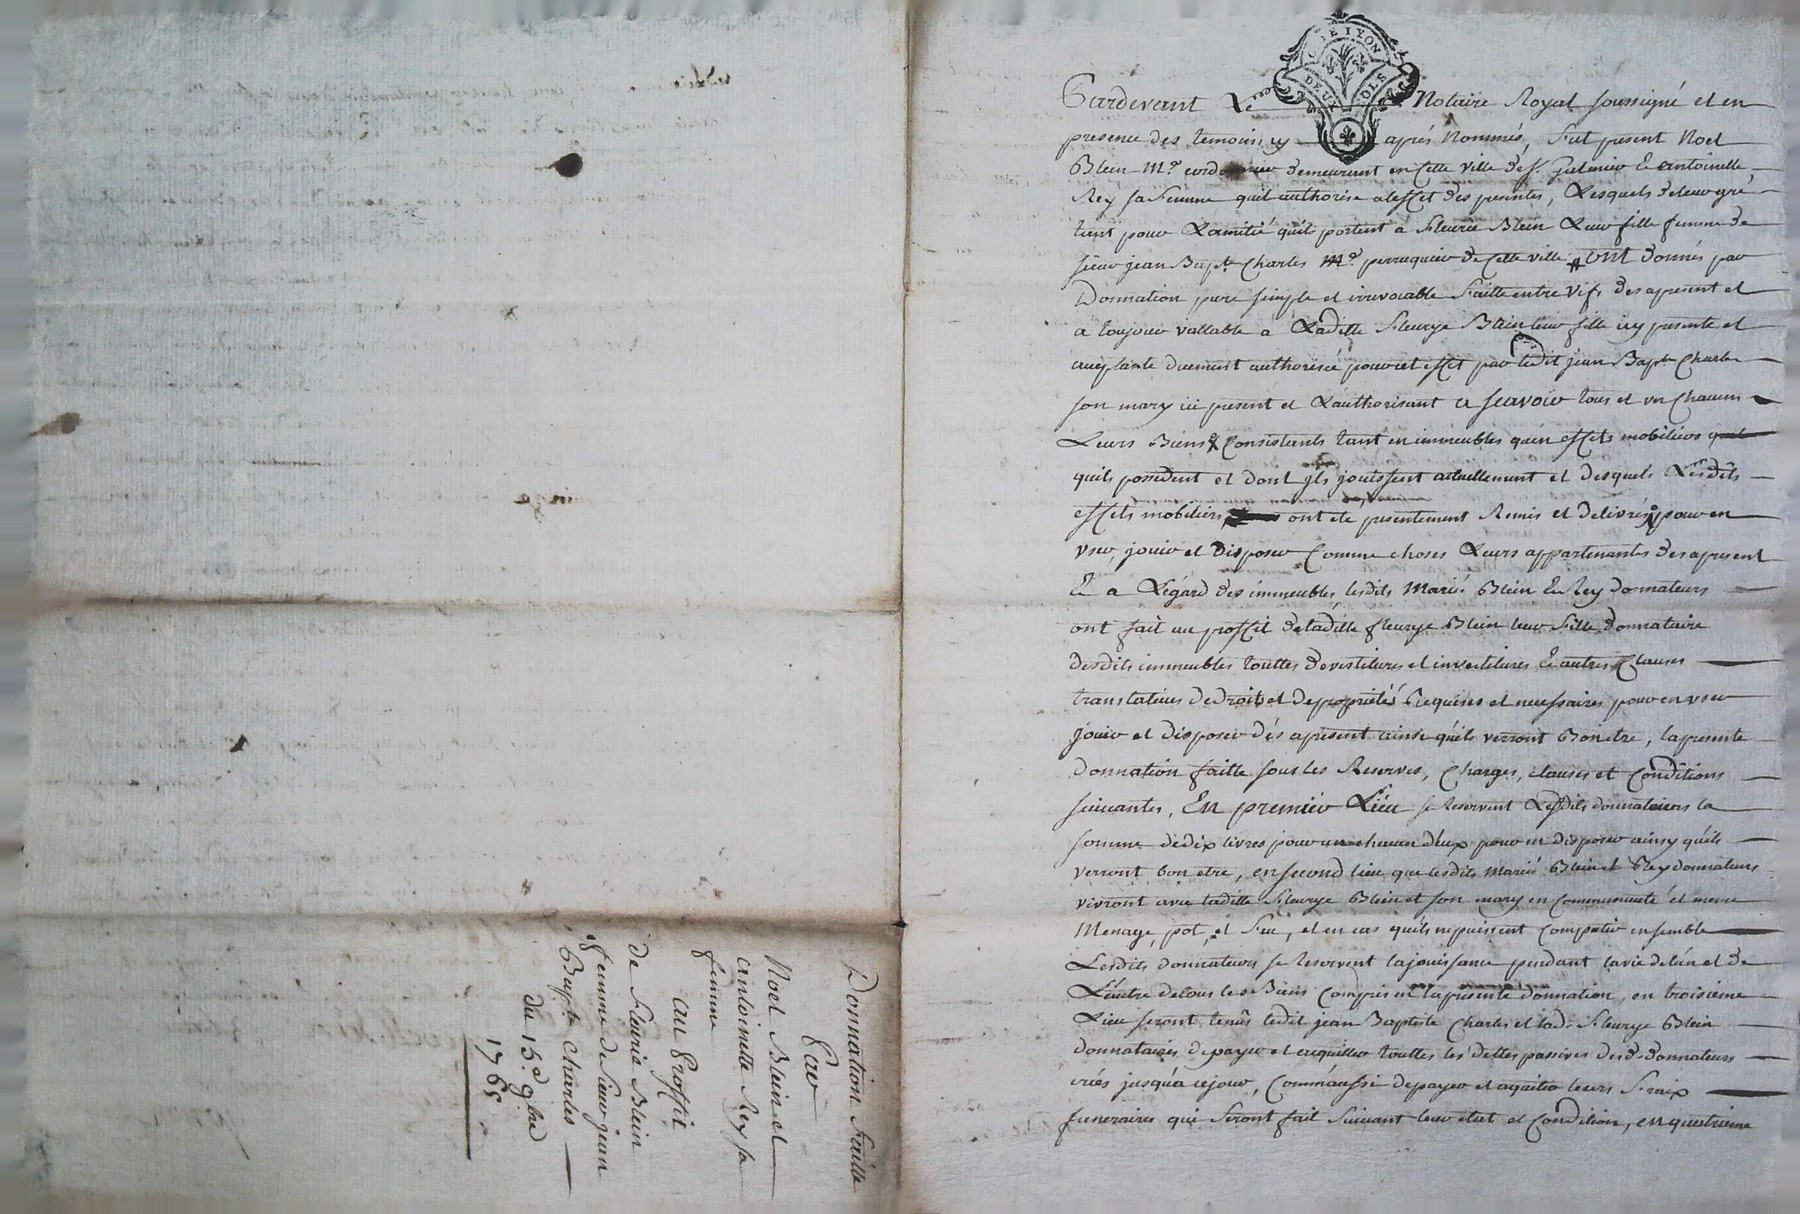 Donnation faitte
Par
Noel Blein et
antoinette Rey sa
femme
au Proffit
de Fleurie Blein
femme de Sieur jean
Bapte Charles
du 15e 9bre
1765
G DE LYON
DEUX SOLS
Pardevant Le Notaire Royal soussigné et en
presence des temoins cy après Nommés, fut present Noel
Blein Me cordonnier demeurant en Cette ville de St Galmier & antoinette
Rey sa femme quil authorise a l'effet des presentes, Lesquels de leur gré
tant pour L'amitié quils portent a fleurie Blein Leur fille femme de
sieur jean Bapte Charles Me perruquier de Cette ville ont donnés par
Donnation pure simple et irrevocable faitte entre Vifs des apresent et
a toujour vallable a Laditte fleurye Blein leur fille icy presente et
acceptante duement authorisée pour cet effet par ledit jean Bapte Charles
son mary ici present et L'authorisant a scavoir tous et un Chacuns
Leurs Biens Consistants tant en immeubles quen effets mobiliers
quils possedent et dont ils jouissent actuellement et desquels Lesdits
effets mobiliers ont ete presentement Remis et delivrés pour en
user, jouir et Disposer Comme choses Leurs appartenantes des apresent
Et a Légard des immeubles, lesdits Mariés Blein & Rey donnateurs
ont fait au proffit de laditte fleurye Blein leur fille donnataire
desdits immeubles touttes devestitures et investitures & autres Clauses
translatives de droits et de propriétés Requises et necessaires pour en user
jouir et disposer dés apresent ainsi quils verront Bon etre, la presente
donnation faitte sous les Reserves, Charges, clauses et Conditions
suivantes, En premiér Liéu se Reservent Lesdits donnateurs la
somme de dix livres pour un chacun d'eux pour en disposer ainsy quils
verront bon etre, en second lieu que lesdits mariés Blein et Rey donnateurs
vivront avec laditte fleurye Blein et son mary en Communauté et meme
Menage, pot, et feu, et en cas quils ne puissent Compatir ensemble
Lesdits donnateurs se Reservent la jouissance pendant la vie de lún et de
Láutre de tous les Biens Compris en la presente donnation, en troisieme
Lieu seront tenus ledit jean Baptiste Charles et lade fleurye Blein
donnataires de payer et acquitter touttes les dettes passives desd. donnateurs
créés jusqúa cejour, Comm'aussi de payer et aquiter leurs fraix
funeraires qui seront fait suivant leur etat et Condition, en quatrieme